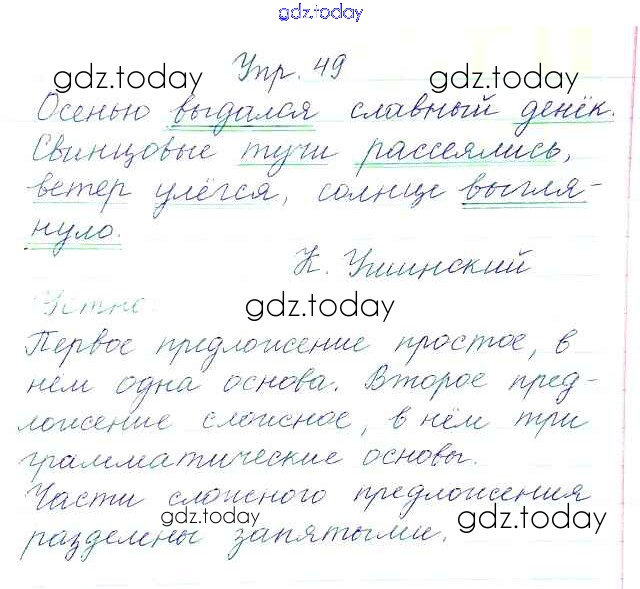 gdz.today
Упр. 49
gdz.today gdz.today
Осенью выдался славный денёк.
Свинцовые тучи рассеялись,
ветер улёгся, солнце выгля-
нуло.
К. Ушинский
Устно.
gdz.today
Первое предложение простое, в
нём одна основа. Второе пред-
ложение сложное, в нём три
грамматические основы.
Части сложного предложения
gdz.today gdz.today
разделены запятыми.